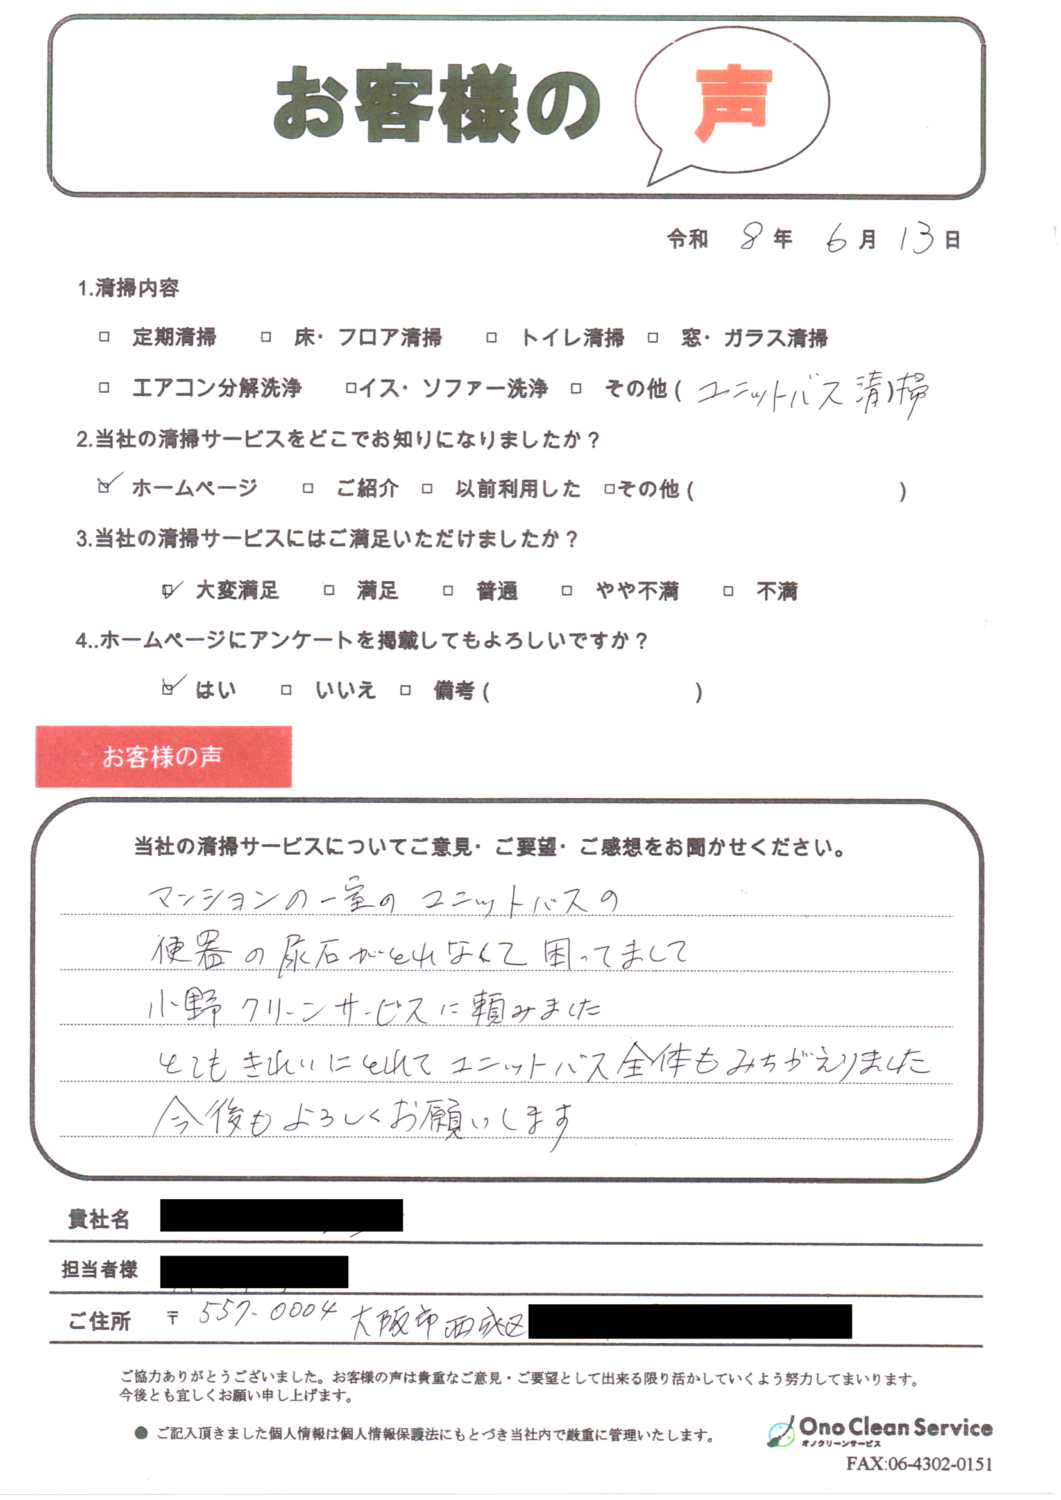 お客様の声
令和 8年 6月 13日
1.清掃内容
□ 定期清掃 □ 床・フロア清掃 □ トイレ清掃 □ 窓・ガラス清掃
□ エアコン分解洗浄 □イス・ソファー洗浄 □ その他( ユニットバス清掃)
2.当社の清掃サービスをどこでお知りになりましたか？
☑ ホームページ □ ご紹介 □ 以前利用した □その他( )
3.当社の清掃サービスにはご満足いただけましたか？
☑ 大変満足 □ 満足 □ 普通 □ やや不満 □ 不満
4..ホームページにアンケートを掲載してもよろしいですか？
☑ はい □ いいえ □ 備考( )
お客様の声
当社の清掃サービスについてご意見・ご要望・ご感想をお聞かせください。
マンションの一室のユニットバスの
便器の尿石がとれなくて困ってまして
小野クリーンサービスに頼みました
とてもきれいにとれてユニットバス全体もみちがえりました
今後もよろしくお願いします
貴社名
担当者様
ご住所 〒 557-0004 大阪市西成区
ご協力ありがとうございました。お客様の声は貴重なご意見・ご要望として出来る限り活かしていくよう努力してまいります。
今後とも宜しくお願い申し上げます。
● ご記入頂きました個人情報は個人情報保護法にもとづき当社内で厳重に管理いたします。
Ono Clean Service
オノクリーンサービス
FAX:06-4302-0151